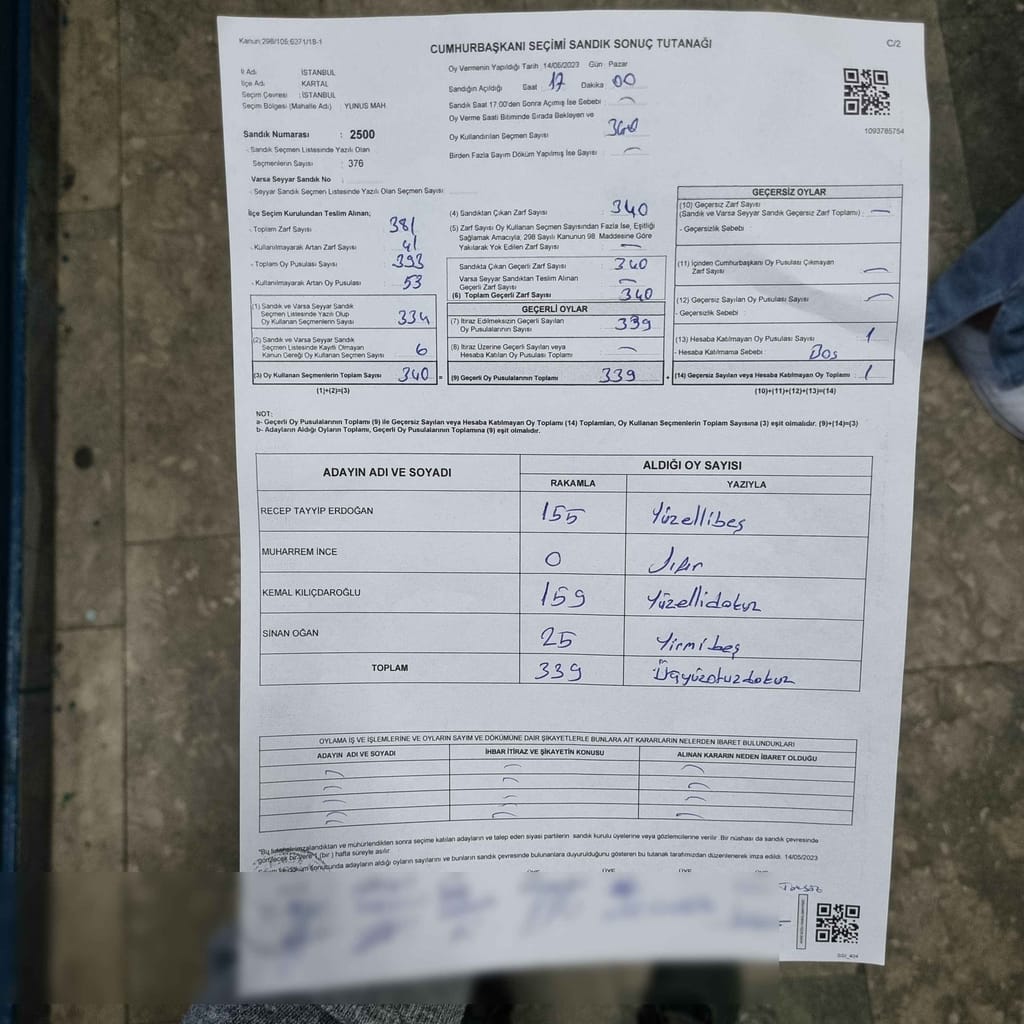 Kanun:298/105;6271/18-1
CUMHURBAŞKANI SEÇİMİ SANDIK SONUÇ TUTANAĞI
C/2
İl Adı : İSTANBUL
İlçe Adı : KARTAL
Seçim Çevresi : İSTANBUL
Seçim Bölgesi (Mahalle Adı) : YUNUS MAH.
Sandık Numarası : 2500
- Sandık Seçmen Listesinde Yazılı Olan
Seçmenlerin Sayısı : 376
Varsa Seyyar Sandık No :
- Seyyar Sandık Seçmen Listesinde Yazılı Olan Seçmen Sayısı :
Oy Vermenin Yapıldığı Tarih :14/05/2023 Gün : Pazar
Sandığın Açıldığı Saat : 17 Dakika : 00
Sandık Saat 17.00'den Sonra Açımış İse Sebebi :
Oy Verme Saati Bitiminde Sırada Bekleyen ve
Oy Kullandırılan Seçmen Sayısı : 340
Birden Fazla Sayım Döküm Yapılmış İse Sayısı :
1093785754
İlçe Seçim Kurulundan Teslim Alınan;
- Toplam Zarf Sayısı : 381
- Kullanılmayarak Artan Zarf Sayısı : 41
- Toplam Oy Pusulası Sayısı : 393
- Kullanılmayarak Artan Oy Pusulası : 53
(1) Sandık ve Varsa Seyyar Sandık
Seçmen Listesinde Yazılı Olup
Oy Kullanan Seçmenlerin Sayısı : 334
(2) Sandık ve Varsa Seyyar Sandık
Seçmen Listesinde Kayıtlı Olmayan
Kanun Gereği Oy Kullanan Seçmen Sayısı : 6
(3) Oy Kullanan Seçmenlerin Toplam Sayısı : 340 =
(1)+(2)=(3)
(4) Sandıktan Çıkan Zarf Sayısı : 340
(5) Zarf Sayısı Oy Kullanan Seçmen Sayısından Fazla İse, Eşitliği
Sağlamak Amacıyla, 298 Sayılı Kanunun 98. Maddesine Göre
Yakılarak Yok Edilen Zarf Sayısı :
Sandıkta Çıkan Geçerli Zarf Sayısı : 340
Varsa Seyyar Sandıktan Teslim Alınan
Geçerli Zarf Sayısı :
(6) Toplam Geçerli Zarf Sayısı : 340
GEÇERLİ OYLAR
(7) İtiraz Edilmeksizin Geçerli Sayılan
Oy Pusulalarının Sayısı : 339
(8) İtiraz Üzerine Geçerli Sayılan veya
Hesaba Katılan Oy Pusulası Toplamı :
(9) Geçerli Oy Pusulalarının Toplamı : 339 +
GEÇERSİZ OYLAR
(10) Geçersiz Zarf Sayısı
(Sandık ve Varsa Seyyar Sandık Geçersiz Zarf Toplamı) :
- Geçersizlik Sebebi :
(11) İçinden Cumhurbaşkanı Oy Pusulası Çıkmayan
Zarf Sayısı :
(12) Geçersiz Sayılan Oy Pusulası Sayısı :
- Geçersizlik Sebebi :
(13) Hesaba Katılmayan Oy Pusulası Sayısı : 1
- Hesaba Katılmama Sebebi : Boş
(14) Geçersiz Sayılan veya Hesaba Katılmayan Oy Toplamı : 1
(10)+(11)+(12)+(13)=(14)
NOT:
a- Geçerli Oy Pusulalarının Toplamı (9) ile Geçersiz Sayılan veya Hesaba Katılmayan Oy Toplamı (14) Toplamları, Oy Kullanan Seçmenlerin Toplam Sayısına (3) eşit olmalıdır. (9)+(14)=(3)
b- Adayların Aldığı Oyların Toplamı, Geçerli Oy Pusulalarının Toplamına (9) eşit olmalıdır.
ADAYIN ADI VE SOYADI ALDIĞI OY SAYISI
RAKAMLA YAZIYLA
RECEP TAYYİP ERDOĞAN 155 Yüzellibeş
MUHARREM İNCE 0 Sıfır
KEMAL KILIÇDAROĞLU 159 Yüzellidokuz
SİNAN OĞAN 25 Yirmibeş
TOPLAM 339 Üçyüzotuzdokuz
OYLAMA İŞ VE İŞLEMLERİNE VE OYLARIN SAYIM VE DÖKÜMÜNE DAİR ŞİKAYETLERLE BUNLARA AİT KARARLARIN NELERDEN İBARET BULUNDUKLARI
ADAYIN ADI VE SOYADI İHBAR İTİRAZ VE ŞİKAYETİN KONUSU ALINAN KARARIN NEDEN İBARET OLDUĞU
"Bu tutanak imzalandıktan ve mühürlendikten sonra seçime katılan adayların ve talep eden siyasi partilerin sandık kurulu üyelerine veya gözlemcilerine verilir. Bir nüshası da sandık çevresinde
görülecek bir yere 1 (bir) hafta süreyle asılır.
sonucunda adayların aldığı oyların sayılarını ve bunların sandık çevresinde bulunanlara duyurulduğunu gösteren bu tutanak tarafımızdan düzenlenerek imza edildi. 14/05/2023
ÜYE ÜYE ÜYE ÜYE